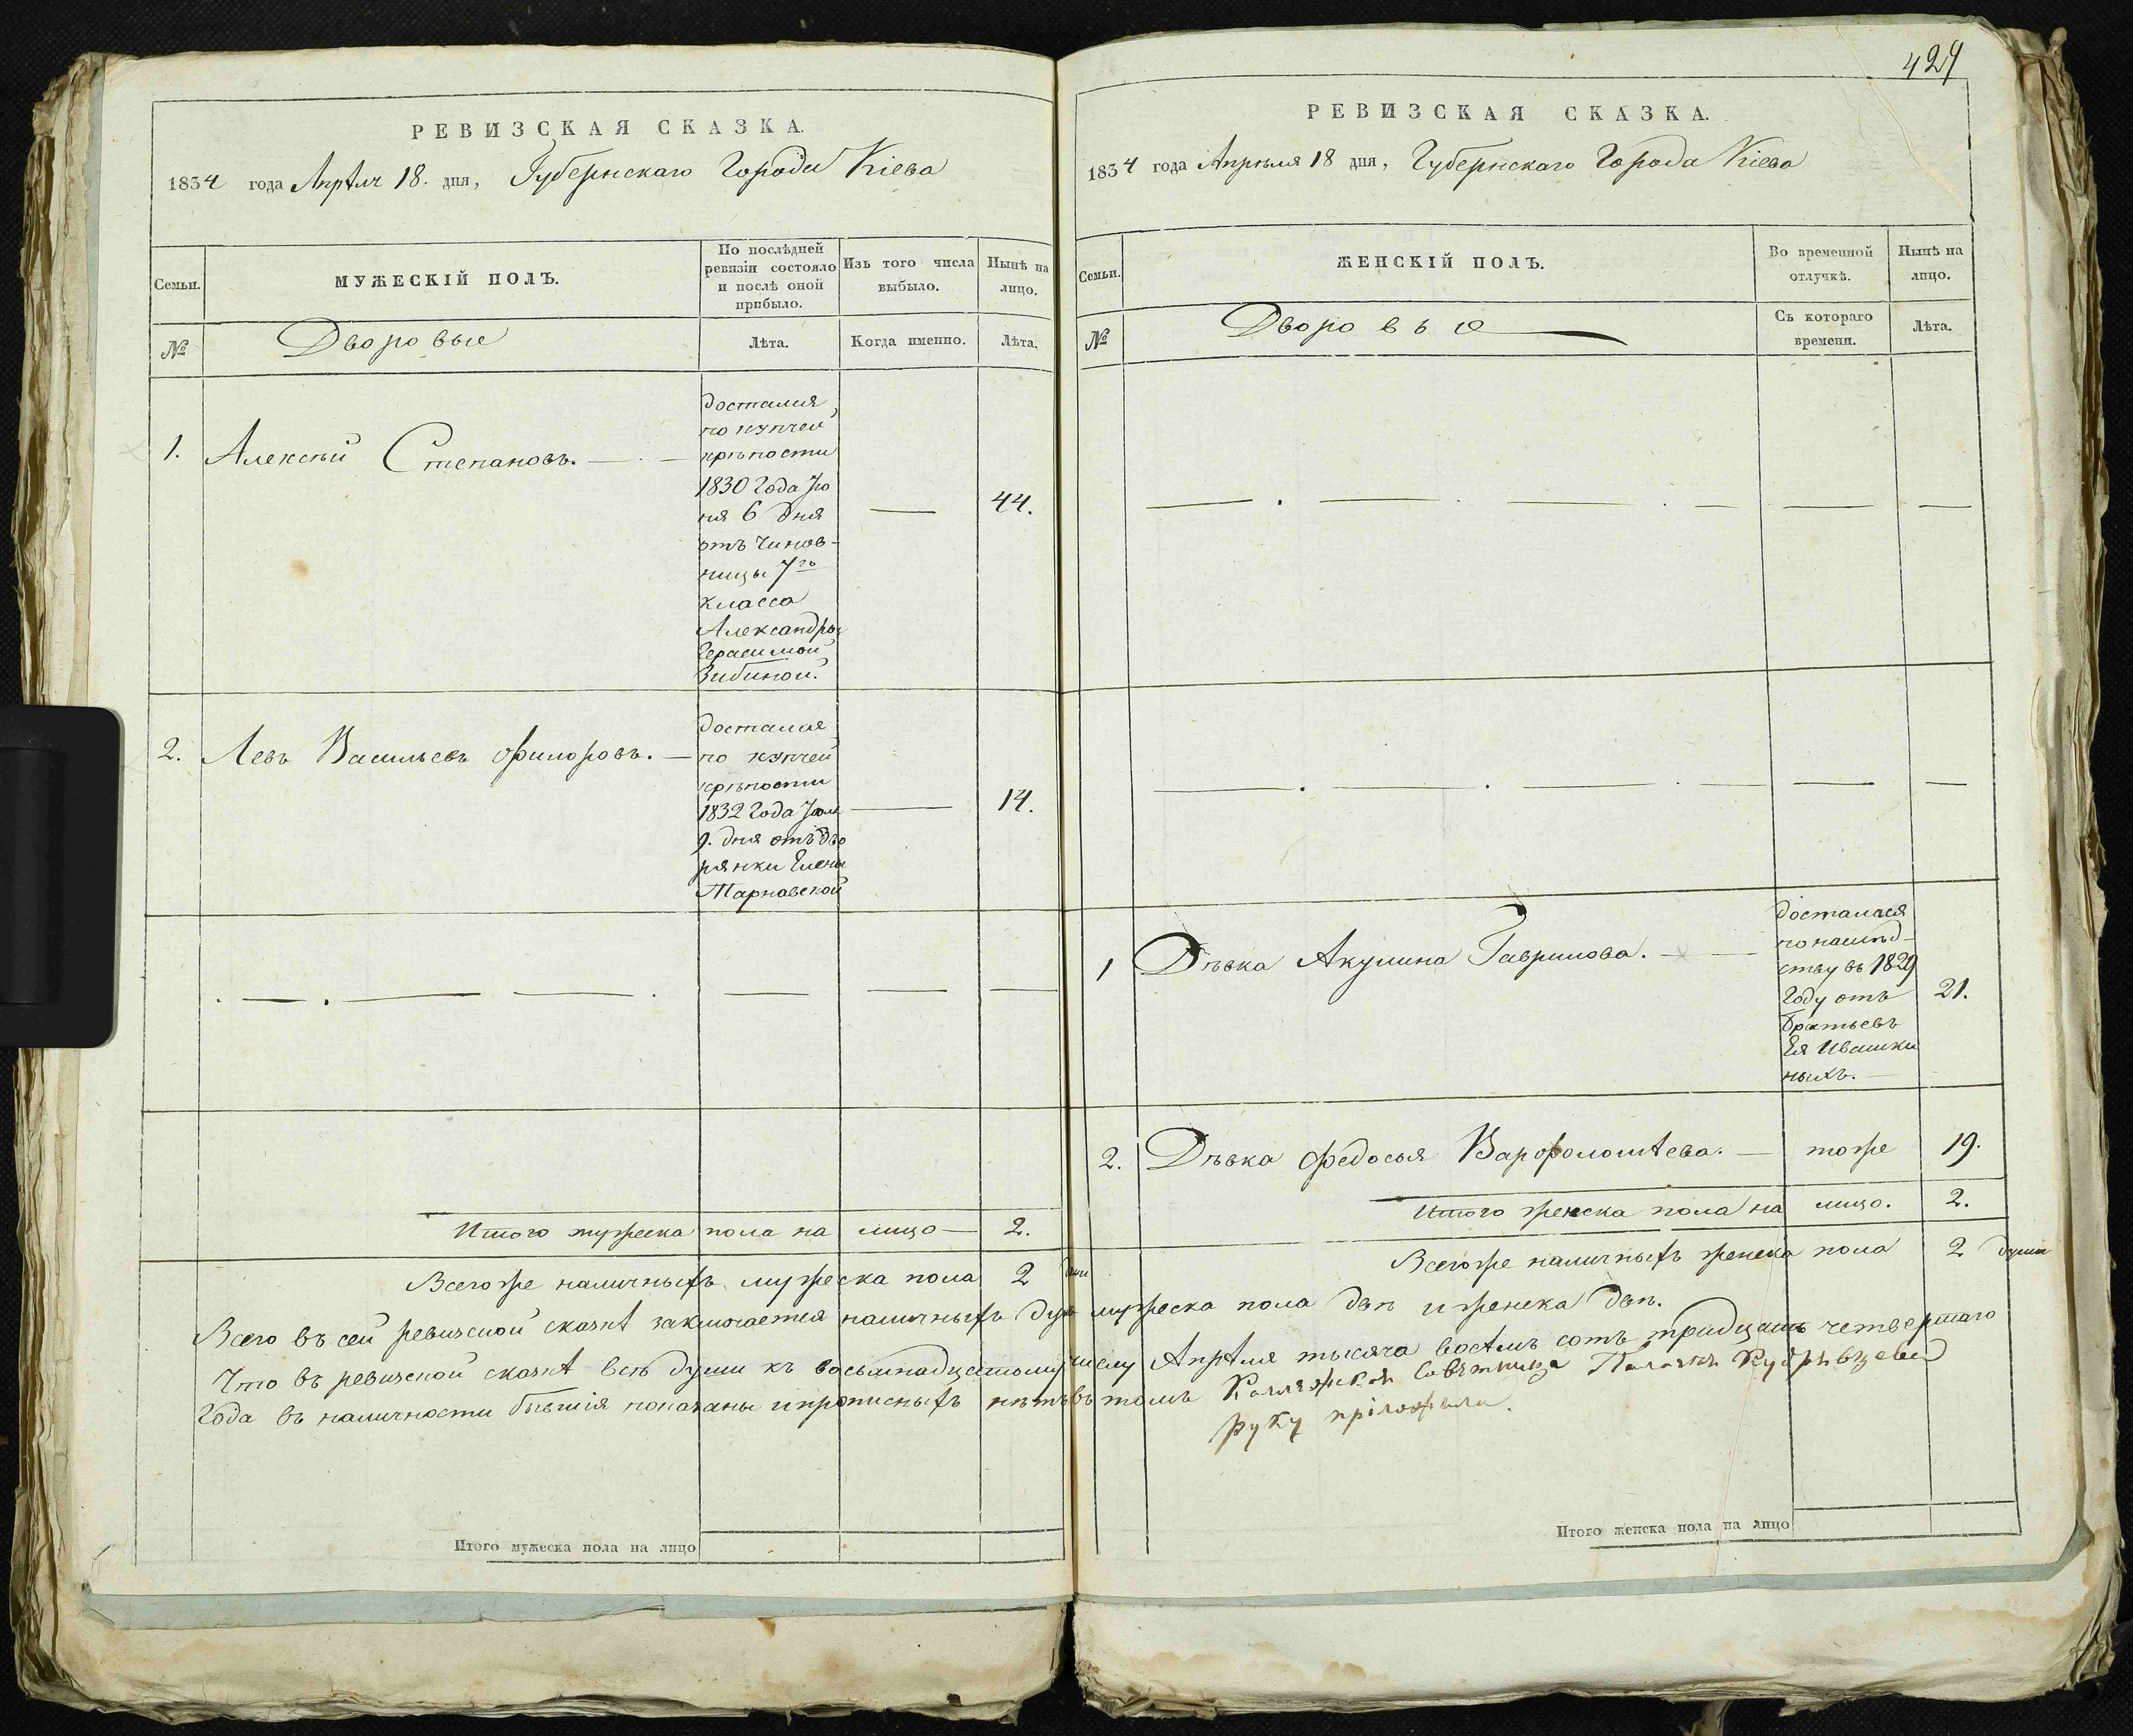 РЕВИЗСКАЯ СКАЗКА.
1834 года Апрѣля 18. дня, Губернскаго Города Кіева
Семьи.
МУЖЕСКІЙ ПОЛЪ.
По послѣдней
ревизіи состояло
и послѣ оной
прибыло.
Изъ того числа
выбыло.
Нынѣ на
лицо.
№
Дворовые
Лѣта.
Когда именно.
Лѣта.
1. Алексѣй Степановъ.
достался
по купчей
крѣпости
1830 Года Ію
ня 6 дня
отъ Чинов-
ницы 7го
класса
Александры
Герасимой
Зибиной.
44.
2. Левъ Васильевъ Филоровъ.
достался
по купчей
крѣпости
1832 Года Іюля
9. дня отъ дво
рянки Елены
Тарновской
14.
Итого мужеска пола на лицо 2.
Всегоже наличныхъ мужеска пола 2
429
РЕВИЗСКАЯ СКАЗКА.
1834 года Апрѣля 18 дня, Губернскаго Города Кіева
Семьи.
ЖЕНСКІЙ ПОЛЪ.
Во временной
отлучкѣ.
Нынѣ на
лицо.
№
Дворовыя
Съ котораго
времени.
Лѣта.
1 Дѣвка Акулина Гаврилова.
досталася
по наслѣд-
ству въ 1829
Году отъ
братьевъ
Ея Ивашки
ныхъ.
21.
2. Дѣвка Федосья Варфоломѣева. тоже 19.
Итого женска пола на лицо. 2.
Всегоже наличныхъ женска пола 2 души
Всего въ сей ревизской сказкѣ заключается наличныхъ душъ мужеска пола двѣ и женска двѣ.
Что въ ревизской сказкѣ всѣ души къ восьмнадцатому числу Апрѣля тысяча восѣмъ сотъ тридцать четвертаго
Года въ наличности бывшія показаны и прописныхъ нѣтъ въ томъ Коллежская Совѣтница Кудрявцева
руку пріложила.
Итого мужеска пола на лицо
Итого женска пола на лицо